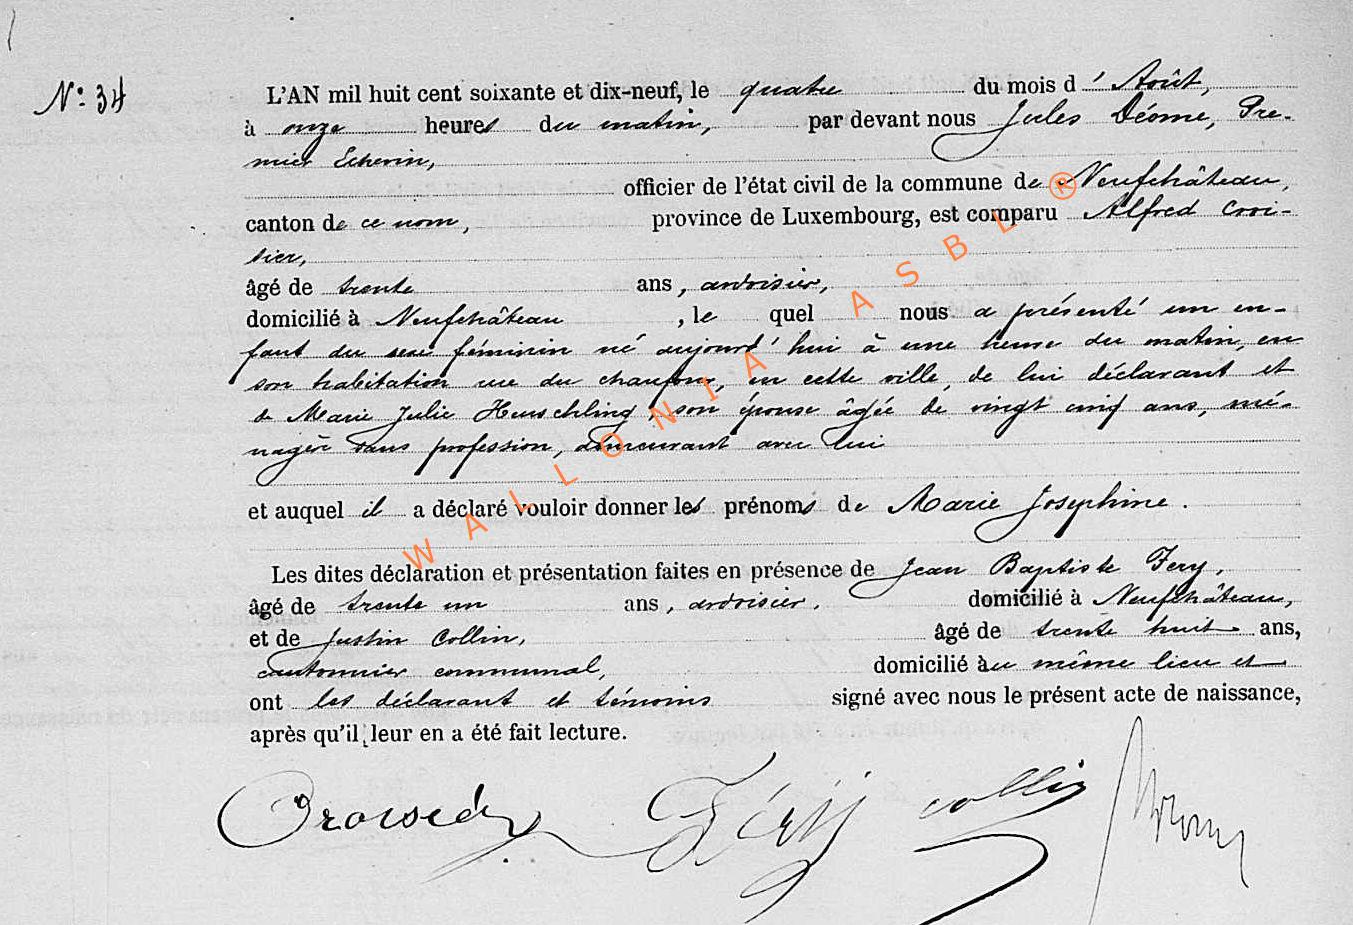 N°: 34
L'AN mil huit cent soixante et dix-neuf, le quatre du mois d' Août,
à onze heures du matin, par devant nous Jules Déome, Pre-
mier Echevin,
officier de l'état civil de la commune de Neufchâteau,
canton de ce nom, province de Luxembourg, est comparu Alfred Croi-
sier,
âgé de trente ans, ardoisier,
domicilié à Neufchâteau, le quel nous a présenté un en-
fant du sexe féminin né aujourd'hui à une heure du matin, en
son habitation rue du chaufour, en cette ville, de lui déclarant et
de Marie Julie Heuschling, son épouse âgée de vingt cinq ans, mé-
nagère sans profession, demeurant avec lui
et auquel il a déclaré vouloir donner les prénoms de Marie Joséphine.
Les dites déclaration et présentation faites en présence de Jean Baptiste Fery,
âgé de trente un ans, ardoisier, domicilié à Neufchâteau,
et de Justin Collin, âgé de trente huit ans,
cantonnier communal, domicilié au même lieu et
ont les déclarant et témoins signé avec nous le présent acte de naissance,
après qu'il leur en a été fait lecture.
Féry collin
WALLONIA ASBL ®